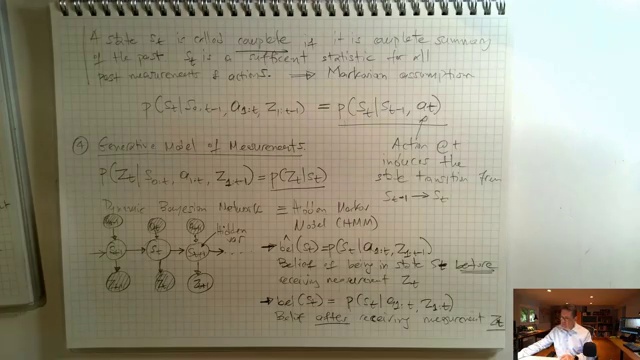 A state St is called complete if it is complete summary
of the past St is a sufficent statistic for all
past measurements & actions. ⟹ Markovian assumption
p(St|S0:t-1, a1:t, Z1:t-1) = p(St|St-1, at)
Action @ t
induces the
state transition from
St-1 → St
④ Generative Model of Measurements
p(Zt|S0:t, a1:t, Z1:t-1) = p(Zt|St)
Dynamic Bayesian Networks ≡ Hidden Markov
Model (HMM)
hidden
St-1 St St+1 ...
Zt-1 Zt Zt+1
→ bel(St) = p(St|a1:t, Z1:t-1)
Belief of being in state St before
receiving measurement Zt
→ bel(St) = p(St|a1:t, Z1:t)
Belief after receiving measurement Zt